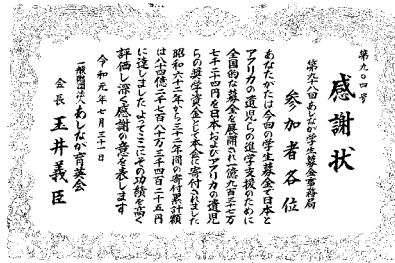 第九〇四号
感謝状
第九十八回 あしなが学生募金事務局
参加者各位
あなたがたは今回の学生募金で日本と
アフリカの遺児らの進学支援のために
全国的な募金を展開され一億九百三十七万
七千二百四円を日本およびアフリカの遺児
らの奨学資金として本会に寄付されました
昭和六十二年から三十二年間の寄付累計額
は八十四億二千七百八十万三千四百二十五円
に達しましたよってここにその功績を高く
評価し深く感謝の意を表します
令和元年七月三十一日
一般財団法人 あしなが育英会
会長 玉井義臣